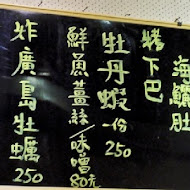 海鱺肚
烤下巴
牡丹蝦 -份 250
鮮魚薑絲/味噌 80元
炸廣島牡蠣 250